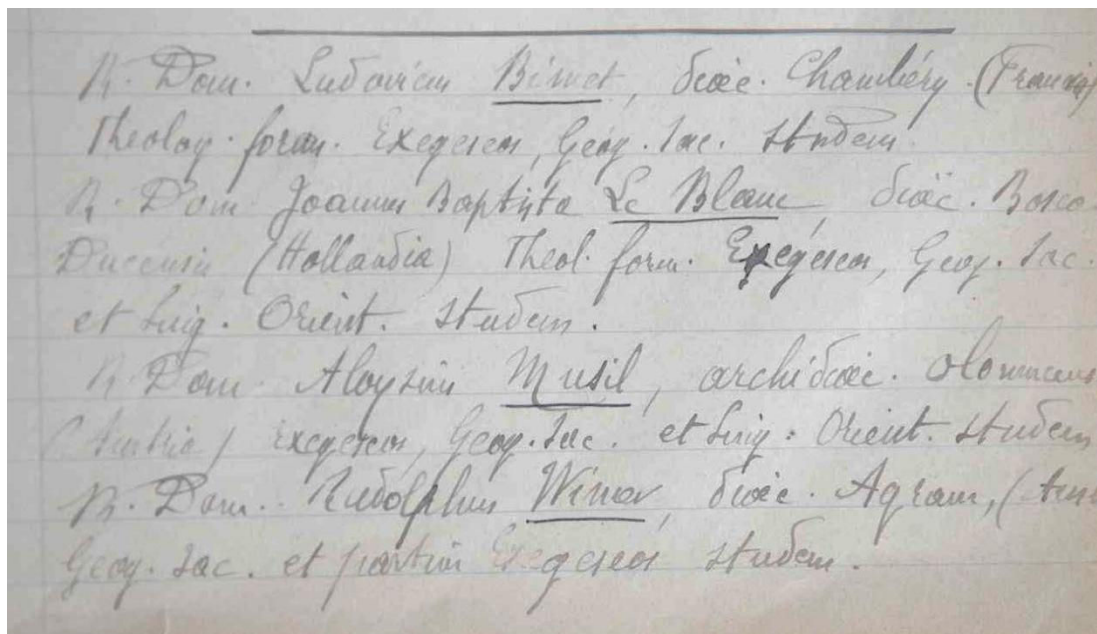 R. Dom. Ludovicus Bimet, dioec. Chambéry. (Francia)
Theolog. form. Exegeseos, Geog. Sac. studens
R. Dom Joannes Baptista Le Blanc, dioec. Bosco
Ducensis (Hollandia) Theol. form. Exegeseos, Geog. Sac.
et Ling. Orient. studens.
R. Dom. Aloysius Musil, archidioec. Olomucens
(Austria) Exegeseos, Geog. Sac. et Ling. Orient. studens
R. Dom. Rudolphus Wimer, dioec. Agram, (Aus
Geog. Sac. et partim Exegeseos studens.